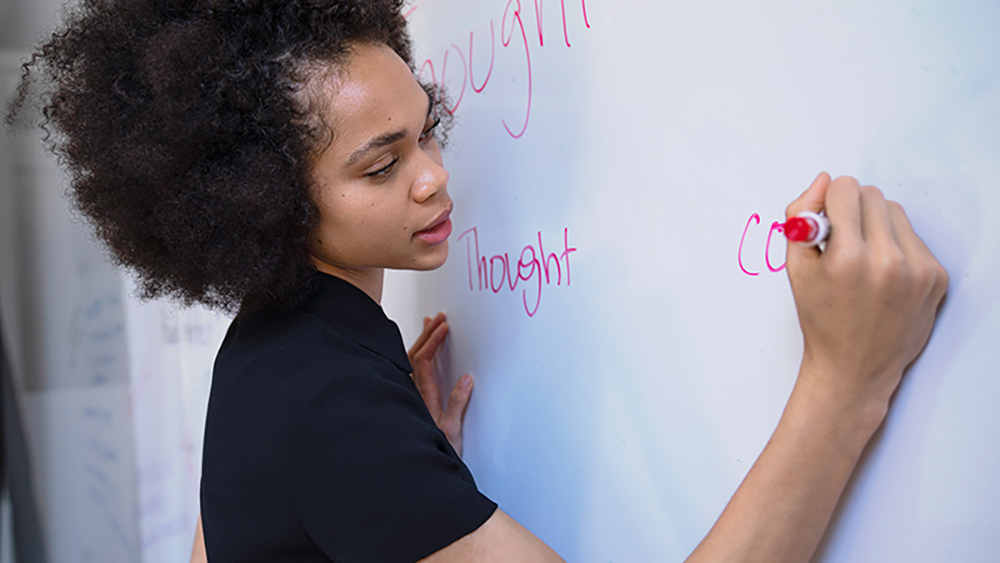 Thought
Thought co